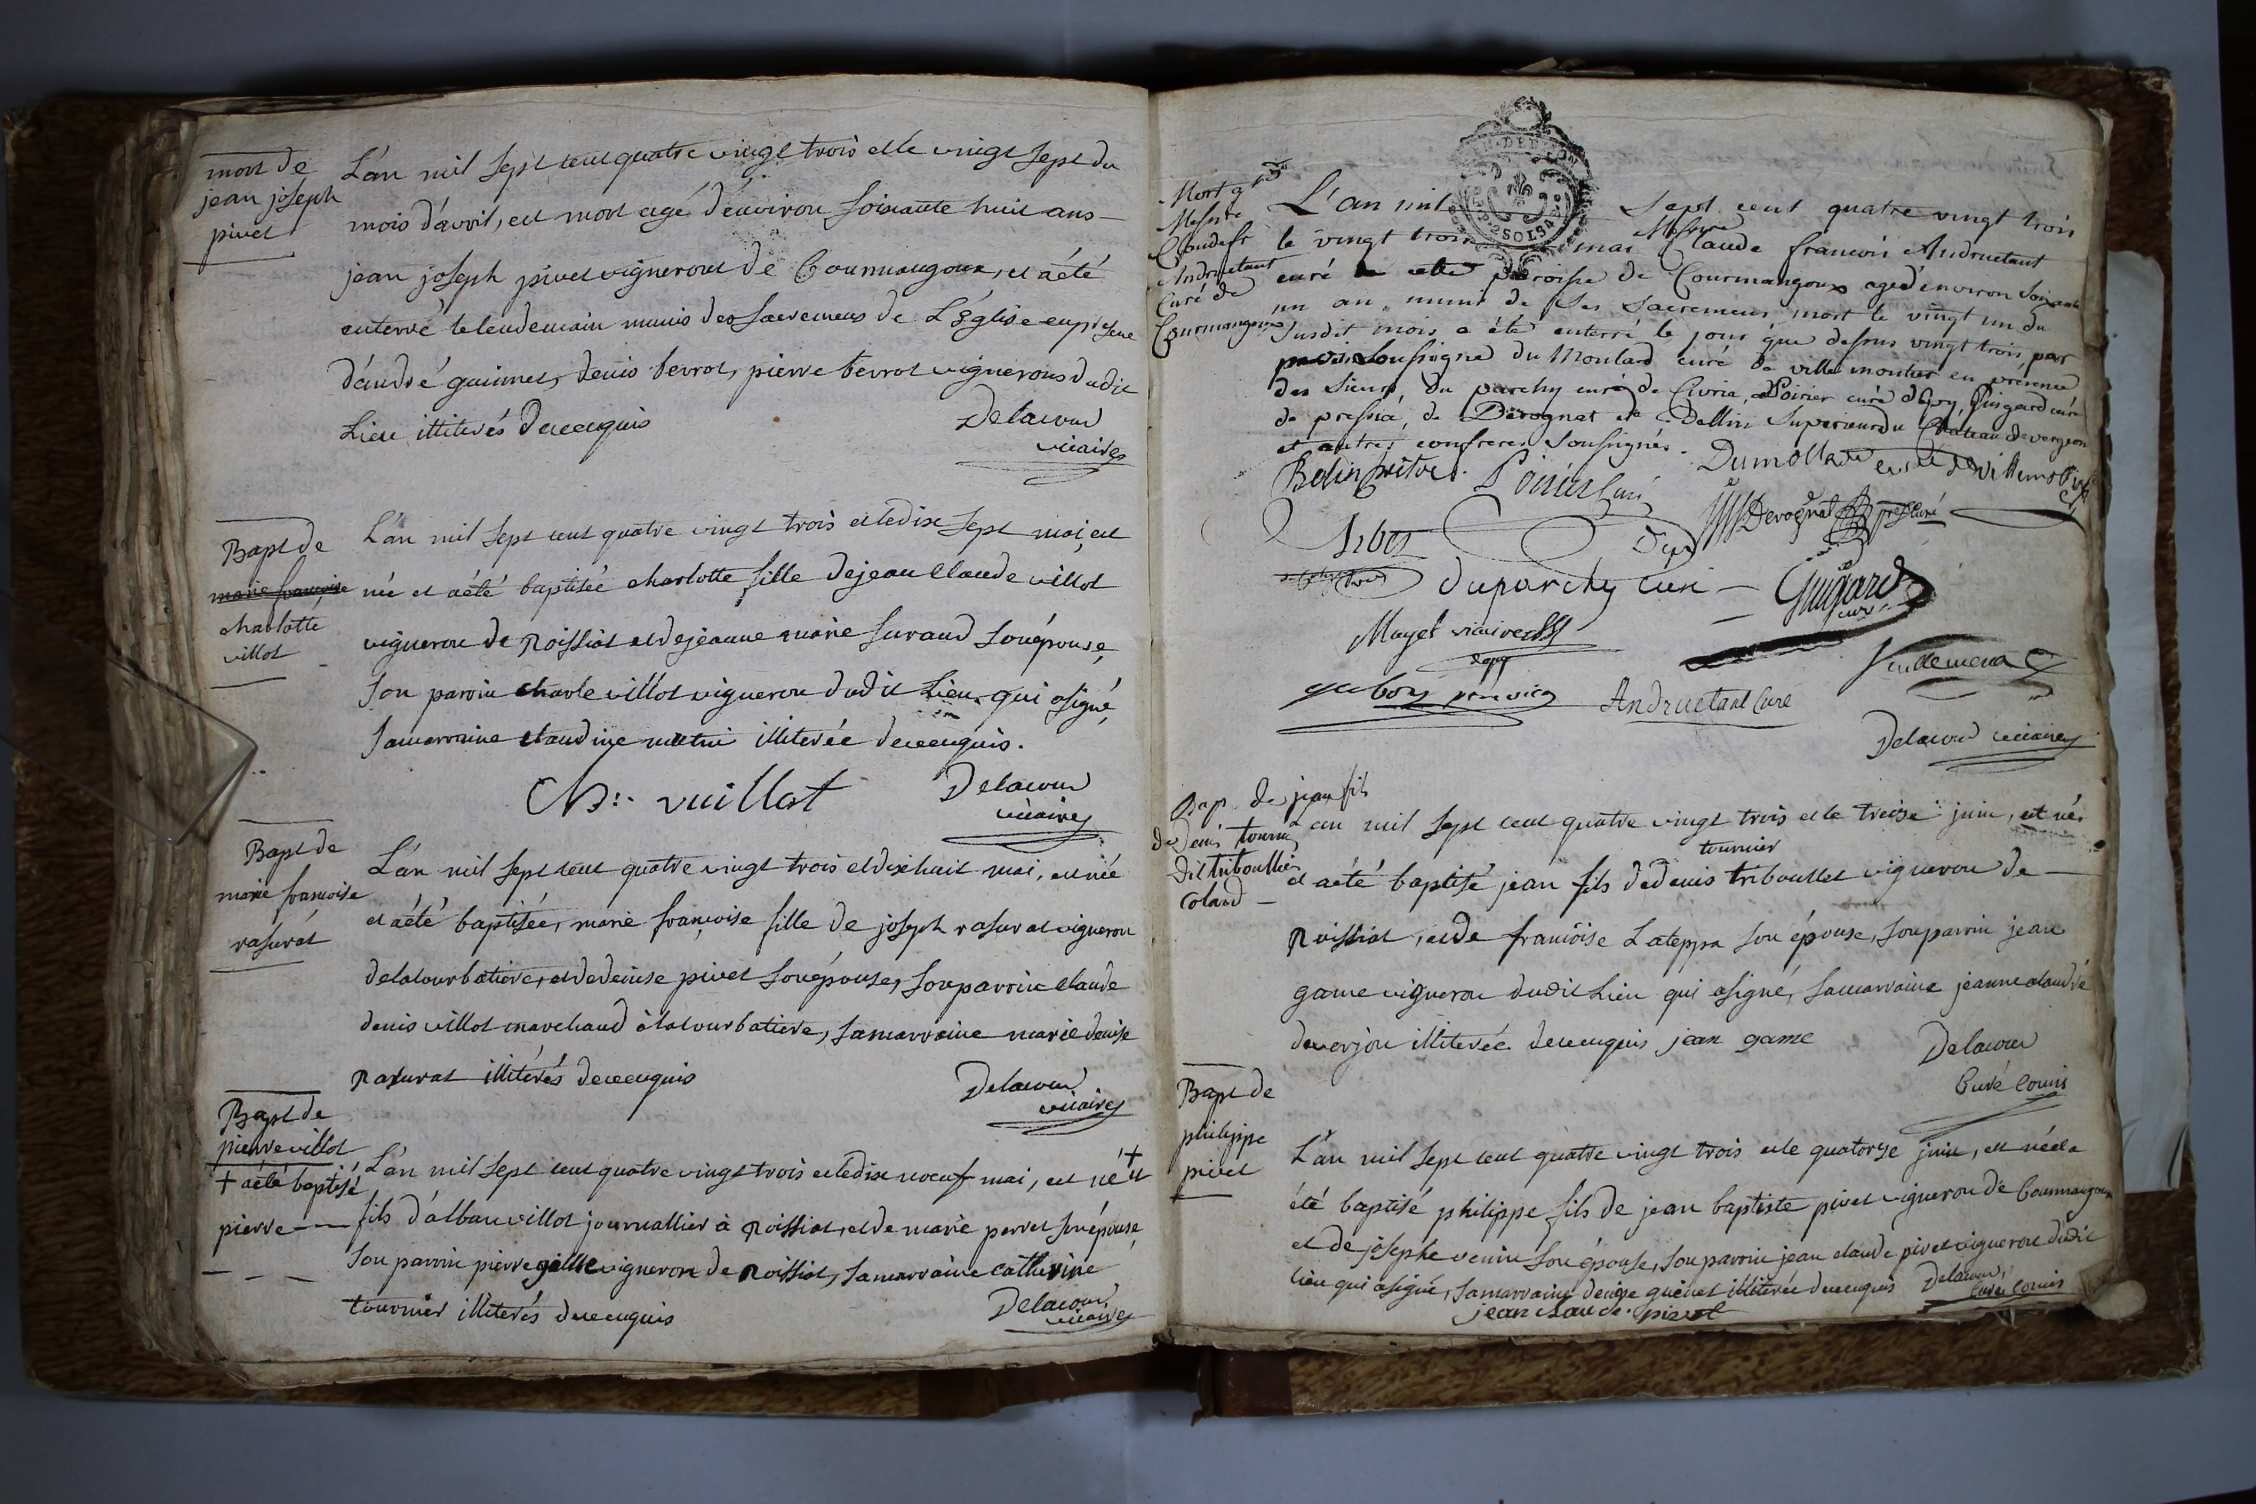 mort de
jean joseph
pivet
L'an mil sept cent quatre vingt trois et le vingt sept du
mois d'avril, est mort agé d'environ soixante huit ans
jean joseph pivet vigneront de Courmangoux, et a été
enterré le lendemain munis des sacremens de L'église en présence
d'andré guinnet, denis bevrot, pierre bevrot vignerons dudit
Lieu illiterés de ce enquis
Delacour
vicaire
Bapt de
marie françoise
charlotte
villot
L'an mil sept cent quatre vingt trois et le dix sept mai, est
née et a été baptisée charlotte fille de jean claude villot
vigneron de Roissiat et de jeanne marie suraud son épouse,
son parrin charle villot vigneron dudit Lieu qui a signé,
sa marraine claudine illiterée de ce enquis.
Ch:. vuillot
Delacour
vicaire
Bapt de
marie françoise
rasurat
L'an mil sept cent quatre vingt trois et dix huit mai, est née
et a été baptisée, marie françoise fille de joseph rasurat vigneron
de la courbatiere, et de denise pivet son épouse, son parrin claude
denis villot marchand à la courbatiere, sa marraine marie denise
Rasurat illitérés de ce enquis
Delacour
vicaire
Bapt de
pierre villot
+ a été baptisé
pierre
L'an mil sept cent quatre vingt trois et le dix noeuf mai, est né + et
fils d'alban villot journallier à Roissiat, et de marie perret son épouse,
son parrin pierre vigneron de Roissiat, sa marraine catherine
tournier illiterés de ce enquis
Delacour
vicaire
Mort
Messire
Claude fr
Andruetant
Curé de
Courmangoux
L'an mil sept cent quatre vingt trois
le vingt trois mai Messire Claude francois Andruetant
curé de cette paroisse de Courmangoux agé d'environ soixante
un an, muni de ses sacremens, mort le vingt un du
susdit mois a été enterré le jour que dessus vingt trois, par
soussigné du Moulard curé de villemoutier en présence
des sieurs du parchy curé de Civria, Poirier curé d'Epy, Guigard curé
de pressia, de Dévognat et de Bellin Superieur du Chateau de vergeon
et autres confreres soussignés.
Belin prètre. Poirier Curé
Dumollard curé de villemotier
Devognat
duparchy curé
Guigard
curé
Mayet vicaire
Andruetant Curé
Delacour vicaire
Bap. de jean fils
de denis tournier
dit triboullier
colard
L'an mil sept cent quatre vingt trois et le treise juin, est né
tournier
et a été baptisé jean fils de denis triboullet vigneron de
Roissiat, et de francoise Lateppa son épouse, son parrin jean
game vigneron dudit Lieu qui a signé, sa marraine jeanne claude
duverjou illiterée de ce enquis jean game
Delacour
Curé Comis
Bapt de
philippe
pivet
L'an mil sept cent quatre vingt trois et le quatorze juin, est né et a
été baptisé philippe fils de jean baptiste pivet vigneron de Courmangoux
et de josephe venin son épouse, son parrin jean claude pivet vigneron dudit
lieu qui a signé, sa marraine denise guenet illitérée de ce enquis
Delacour
Curé Comis
jean claude pivet